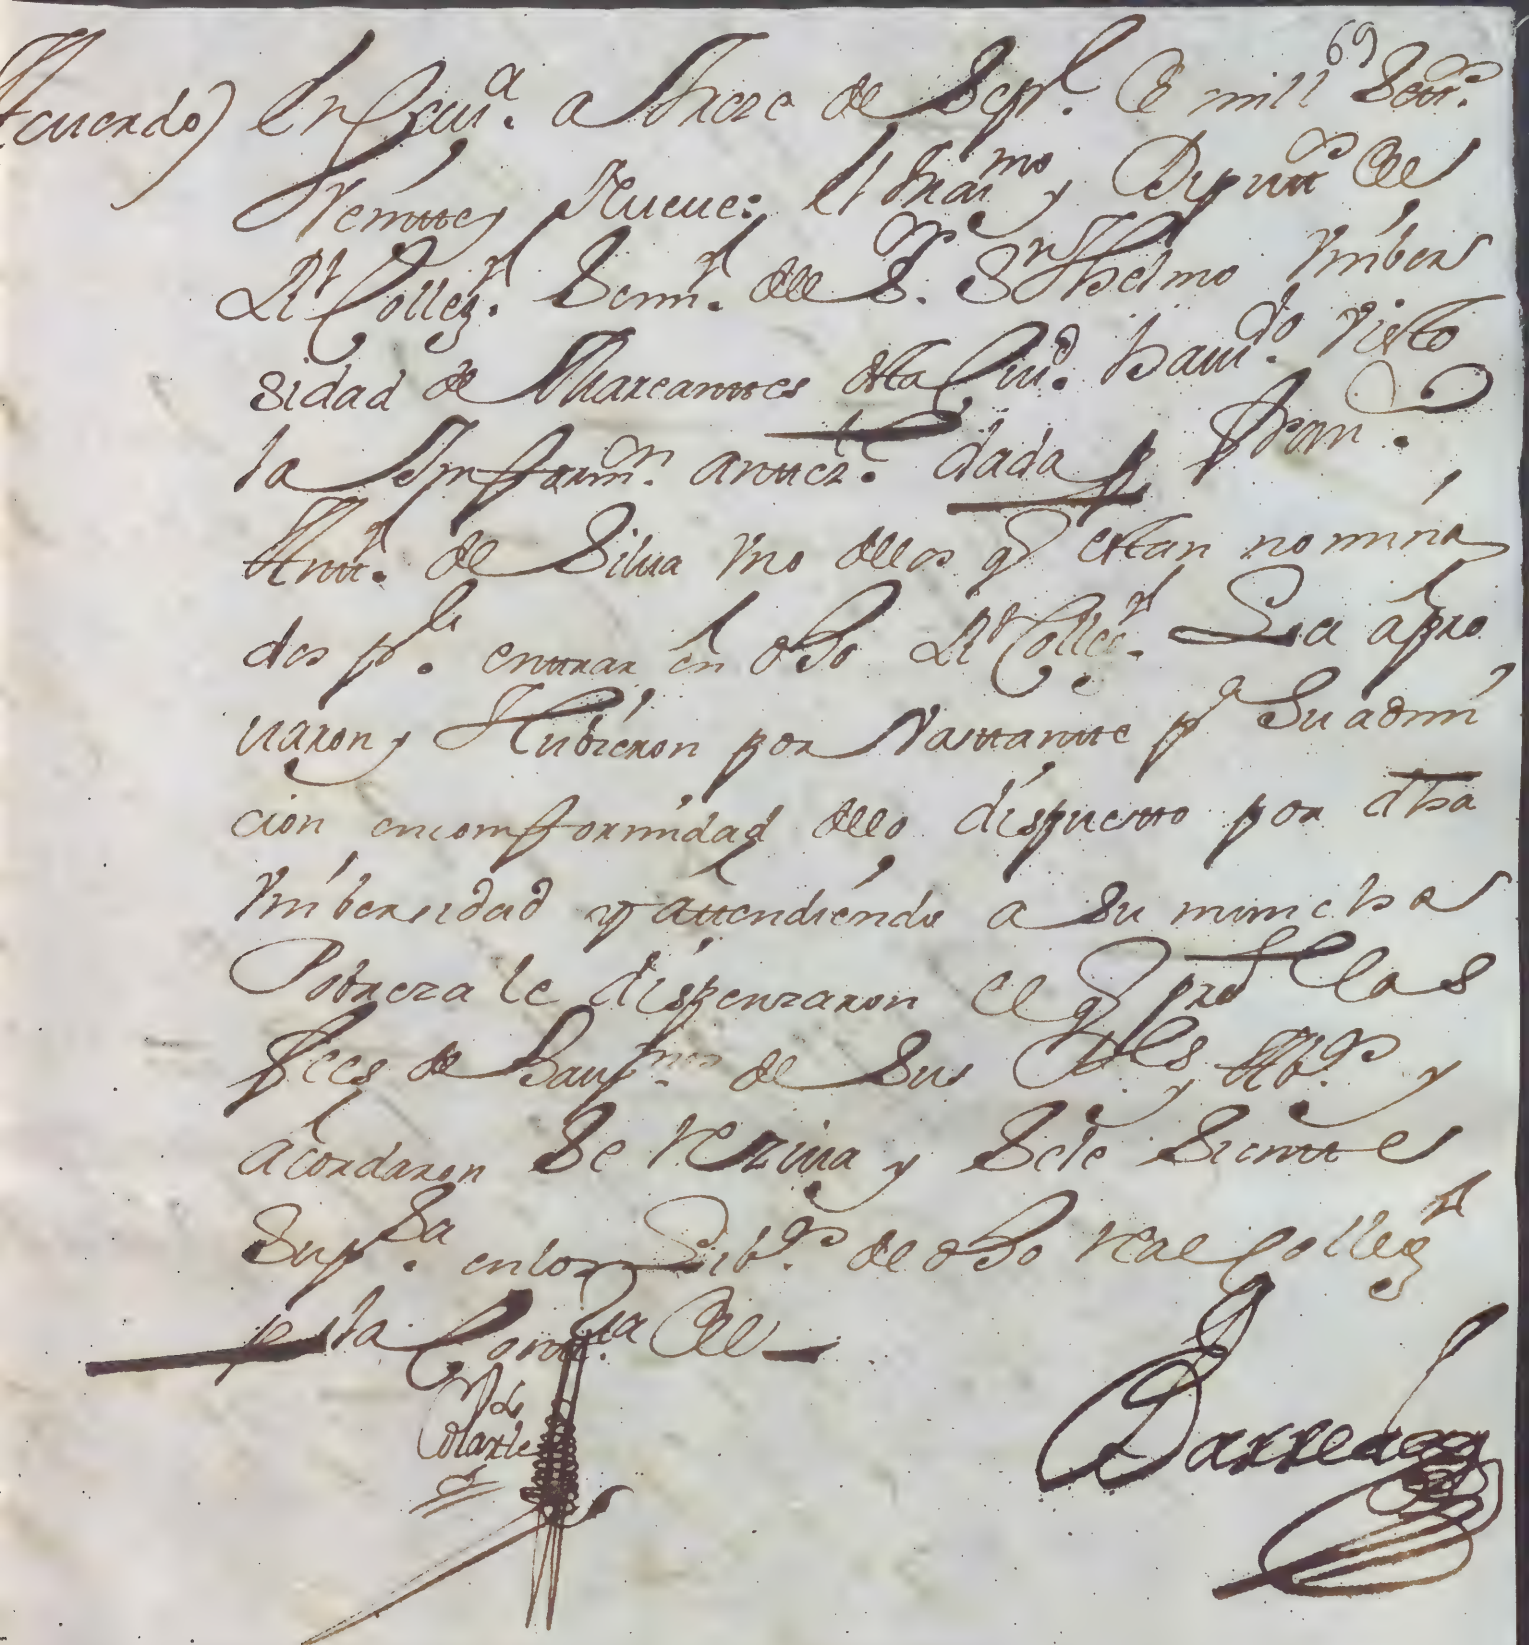 69
Acuerdo) En Seuia. a Treze de Sepe. de mill Settos.
Veintte y Nueue: el Maimo y Diputtos del
Rl Collegl. Semil. de Sr. Sn Thelmo Vniber
sidad de Mareanttes desta Ciud. hauido. visto
la Ynfformn. antteze. dada pr Fran.co
Antto. de Silua Vno de los qe estan nomina
dos pa. enttrar en dho Rl Collegl. La apro
uaron y Hubieron por Vasttantte pa Su admi
cion en comfformidad de lo dispuesto por dha
Vnibersidad y attendiendo a su mincha
Pobreza le dispenzaron el qe prete las
ffees de Baupmos de Sus Pdes y Abos y
acordaron Se reziua y Se le Sientte
Su pza. en los Libos. de dho real Collegl
pr la Conttia del
Dn
Olarte
Barreda